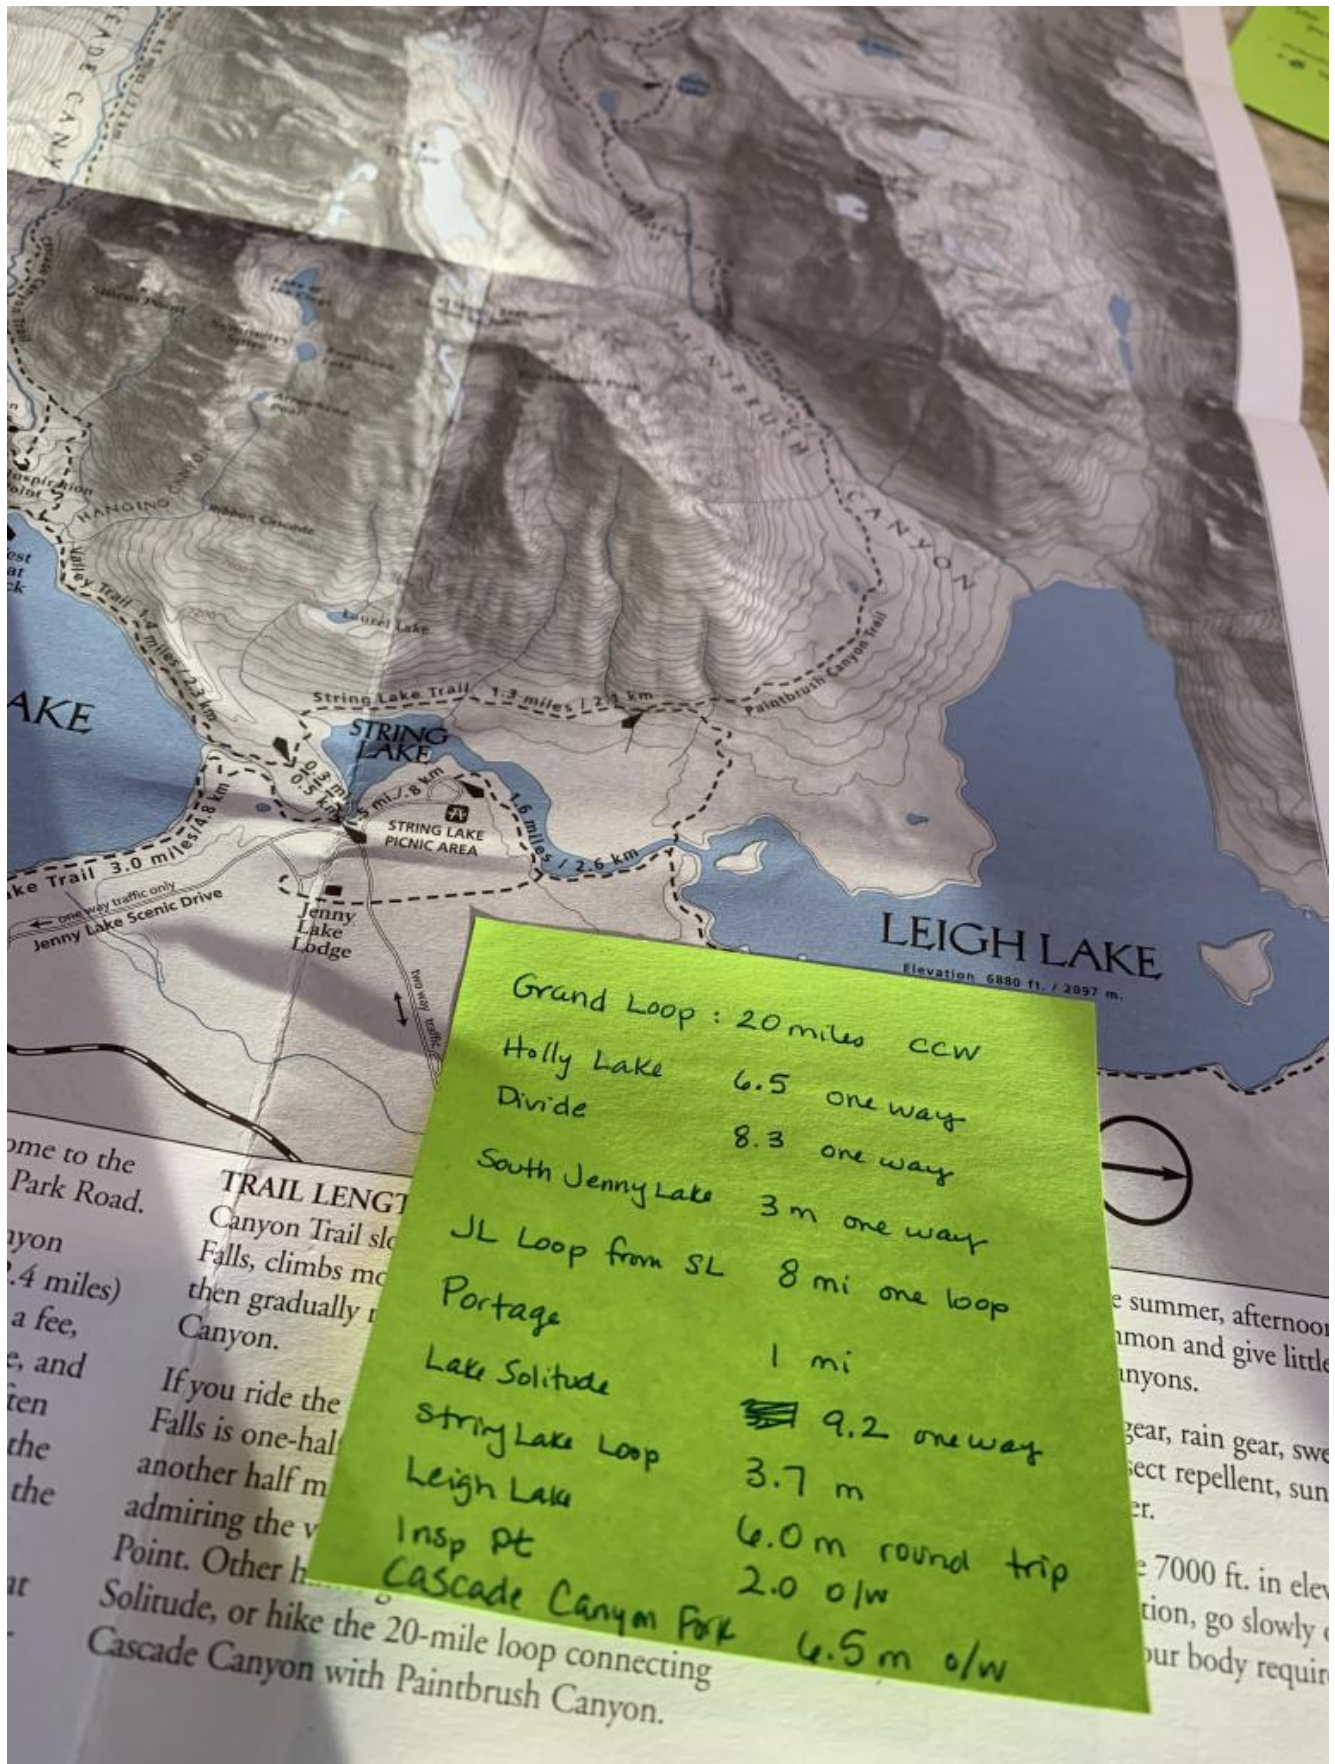 CANYON
HANGING CANYON
Ribbon Cascade
Laurel Lake
Valley Trail 1.4 miles / 2.3 km
PAINTBRUSH
CANYON
String Lake Trail 1.3 miles / 2.1 km
Paintbrush Canyon Trail
AKE
STRING
LAKE
0.3 mi.
0.5 km
.5 mi./.8 km
STRING LAKE
PICNIC AREA
1.6 miles / 2.6 km
ke Trail 3.0 miles/4.8 km
one way traffic only
Jenny Lake Scenic Drive
Jenny
Lake
Lodge
two way traffic
LEIGH LAKE
Elevation 6880 ft. / 2097 m.
Grand Loop : 20 miles CCW
Holly Lake 6.5 one way
Divide 8.3 one way
South Jenny Lake 3 m one way
JL Loop from SL 8 mi one loop
Portage 1 mi
Lake Solitude 9.2 one way
String Lake Loop 3.7 m
Leigh Lake 6.0 m round trip
Insp Pt 2.0 o/w
Cascade Canyon Fork 6.5 m o/w
ome to the
Park Road.
nyon
.4 miles)
a fee,
e, and
ten
the
the
at
TRAIL LENGT
Canyon Trail slo
Falls, climbs mo
then gradually r
Canyon.
If you ride the
Falls is one-hal
another half m
admiring the v
Point. Other h
Solitude, or hike the 20-mile loop connecting
Cascade Canyon with Paintbrush Canyon.
e summer, afternoon
mmon and give little
anyons.
gear, rain gear, swe
sect repellent, sun
er.
e 7000 ft. in elev
tion, go slowly
our body requir